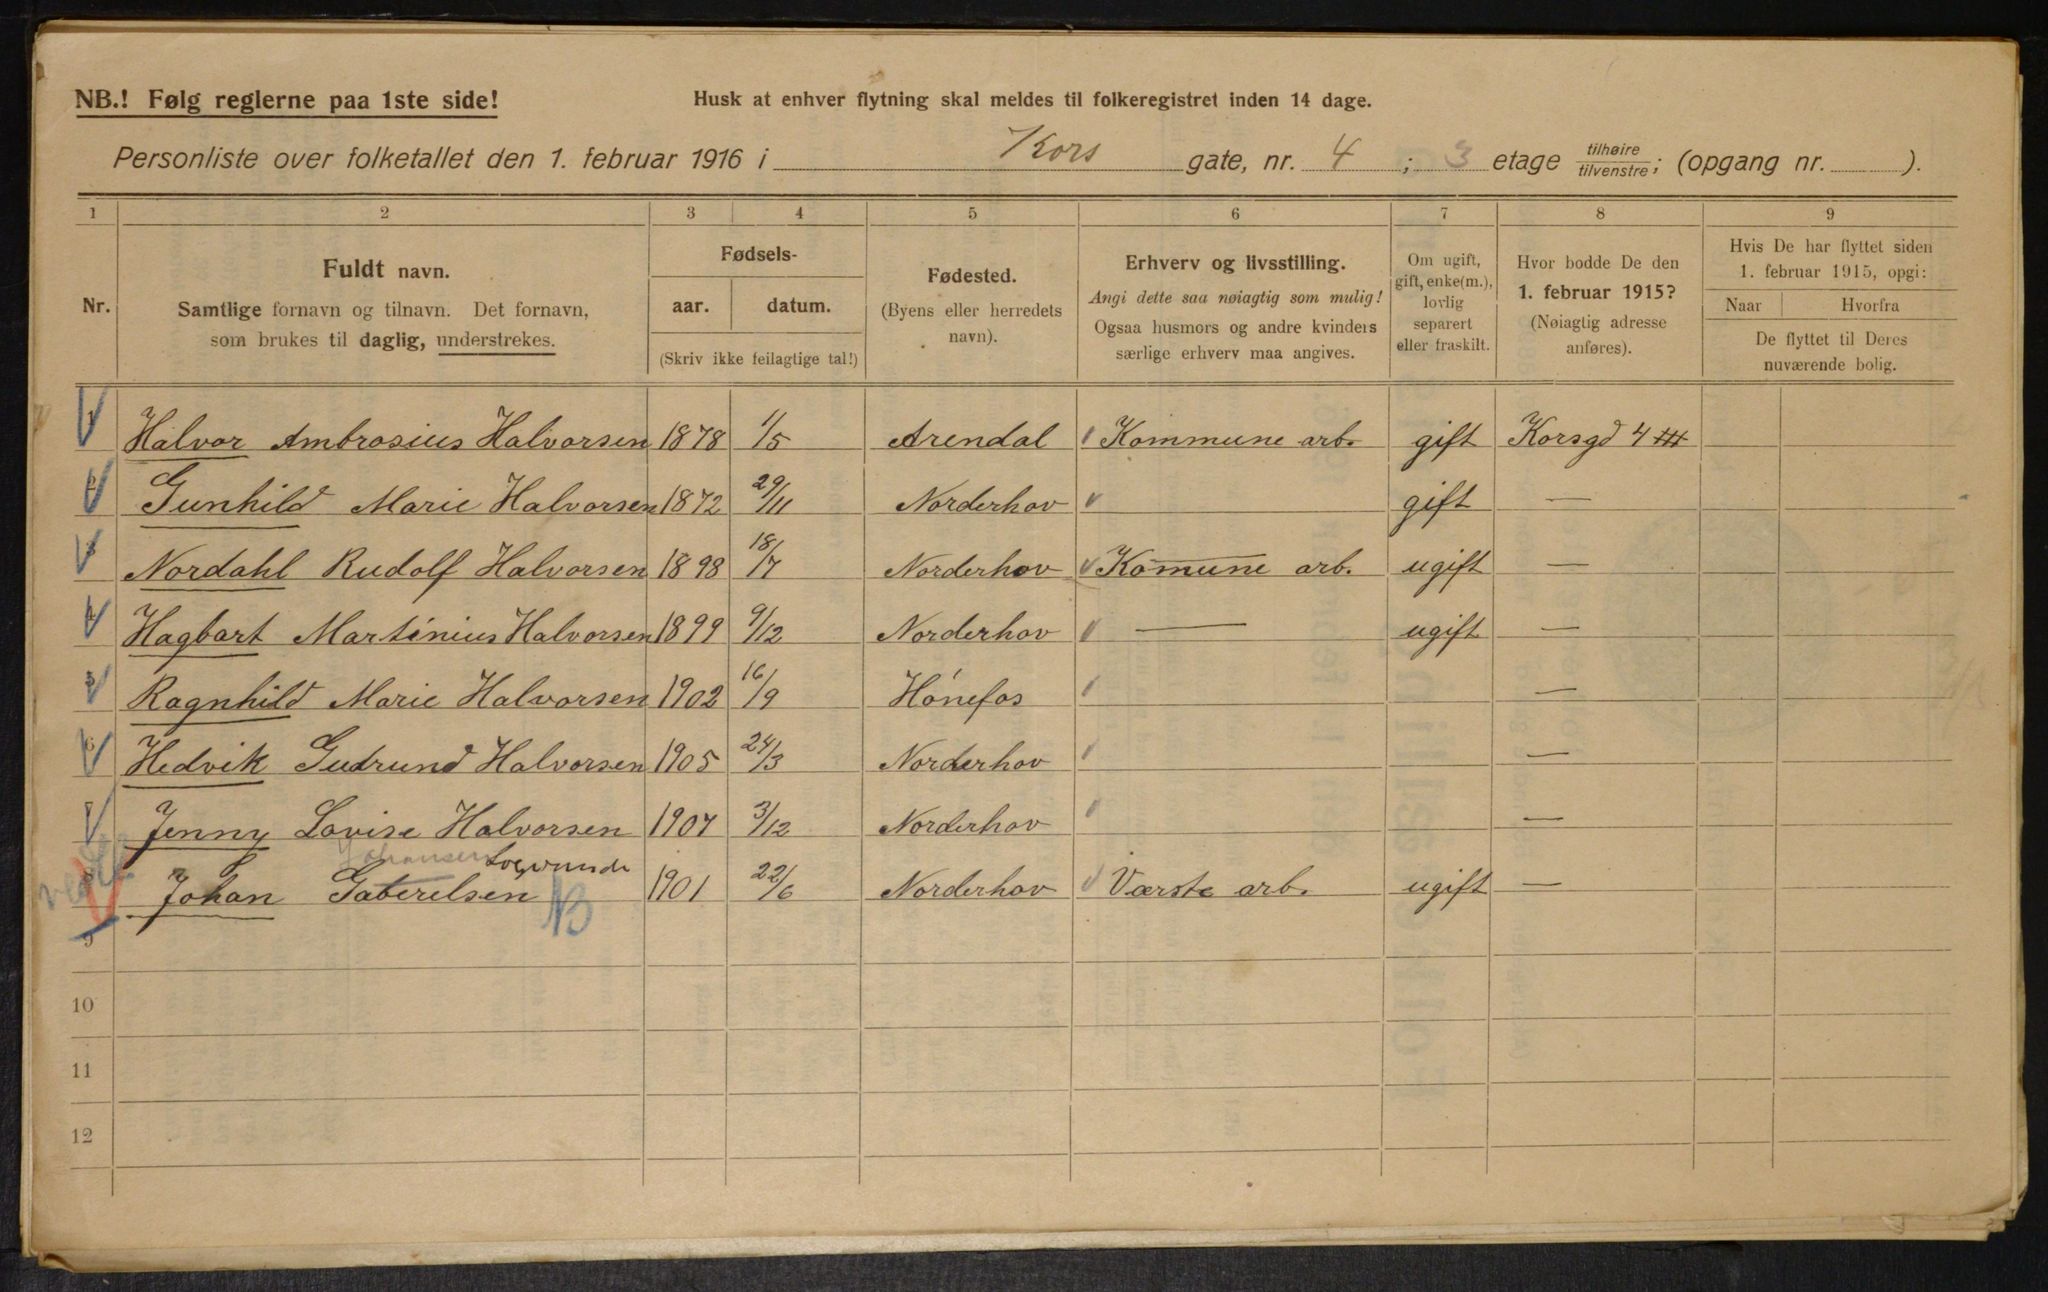 NB.! Følg reglerne paa 1ste side!
Husk at enhver flytning skal meldes til folkeregistret inden 14 dage.
Personliste over folketallet den 1. februar 1916 i Kors gate, nr. 4; 3 etage tilhøire/tilvenstre; (opgang nr. ).
1 2 3 4 5 6 7 8 9
Nr.
Fuldt navn.
Samtlige fornavn og tilnavn. Det fornavn,
som brukes til daglig, understrekes.
Fødsels-
aar. datum.
(Skriv ikke feilagtige tal!)
Fødested.
(Byens eller herredets
navn).
Erhverv og livsstilling.
Angi dette saa nøiagtig som mulig!
Ogsaa husmors og andre kvinders
særlige erhverv maa angives.
Om ugift,
gift, enke(m.),
lovlig
separert
eller fraskilt.
Hvor bodde De den
1. februar 1915?
(Nøiagtig adresse
anføres).
Hvis De har flyttet siden
1. februar 1915, opgi:
Naar Hvorfra
De flyttet til Deres
nuværende bolig.
1 Halvor Ambrosius Halvorsen 1878 1/5 Arendal Kommune arb. gift Korsgd 4 III
2 Gunhild Marie Halvorsen 1872 29/11 Norderhov gift —
3 Nordahl Rudolf Halvorsen 1898 18/7 Norderhov Komune arb. ugift —
4 Hagbart Martinius Halvorsen 1899 9/12 Norderhov — ugift —
5 Ragnhild Marie Halvorsen 1902 16/9 Hónefos —
6 Hedvik Gudrund Halvorsen 1905 24/3 Norderhov —
7 Jenny Lovise Halvorsen 1907 3/12 Norderhov —
Johansen
8 Johan Gaberelsen 1901 22/6 Norderhov Værste arb. ugift —
NB
9
10
11
12